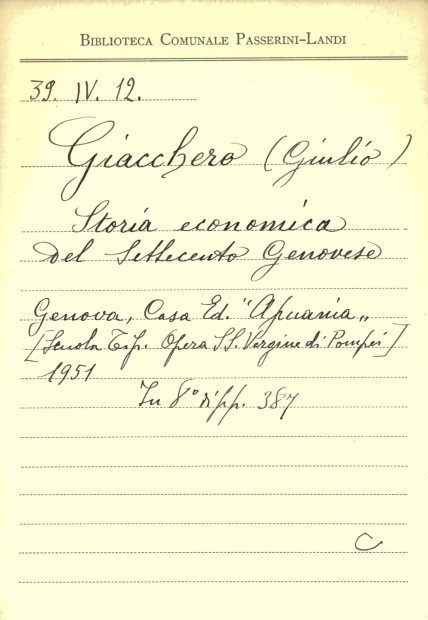 BIBLIOTECA COMUNALE PASSERINI-LANDI
39. IV. 12.
Giacchero (Giulio)
Storia economica
del Settecento Genovese
Genova, Casa Ed. "Apuania„
[Scuola Tip. Opera SS. Vergine di Pompei]
1951
In 8° di pp. 387
C